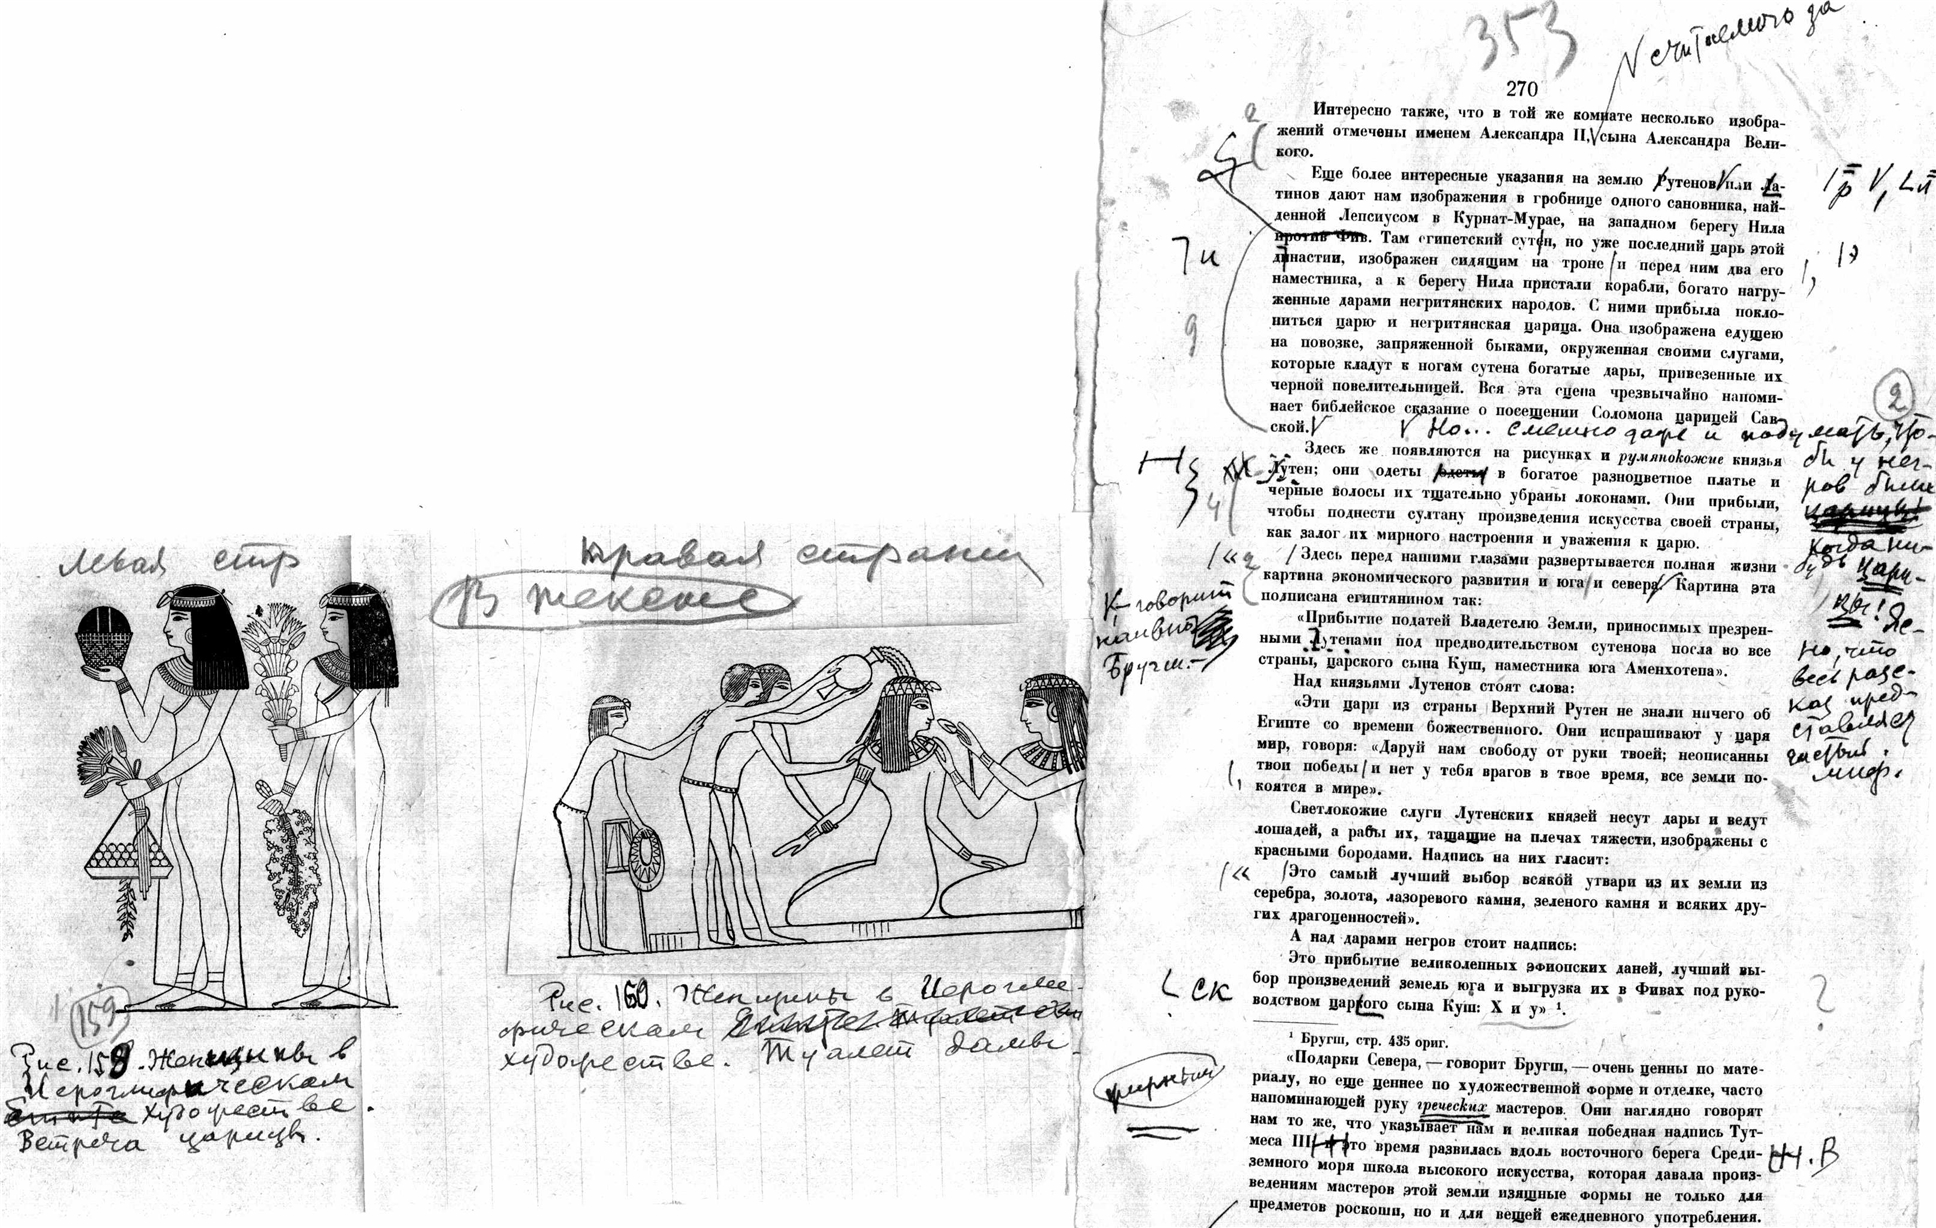 левая стр
правая страниц
В тексте
159
Рис. 159. Женщины в
Иероглифическом
художестве.
Встреча царицы.
Рис. 160. Женщины в Иерогли-
фическом
художестве. Туалет дамы
353
V считаемого за
270
Интересно также, что в той же комнате несколько изобра-
жений отмечены именем Александра II, V сына Александра Вели-
кого.
Еще более интересные указания на землю Рутенов или Ла-
тинов дают нам изображения в гробнице одного сановника, най-
денной Лепсиусом в Курнат-Мурае, на западном берегу Нила
против Фив. Там египетский сутен, но уже последний царь этой
династии, изображен сидящим на троне и перед ним два его
наместника, а к берегу Нила пристали корабли, богато нагру-
женные дарами негритянских народов. С ними прибыла покло-
ниться царю и негритянская царица. Она изображена едущею
на повозке, запряженной быками, окруженная своими слугами,
которые кладут к ногам сутена богатые дары, привезенные их
черной повелительницей. Вся эта сцена чрезвычайно напоми-
нает библейское сказание о посещении Соломона царицей Сав-
ской. V
V Но... смешно даже и подумать, что-
бы у нег-
ров были
когда ни-
будь цари-
цы! Яс-
но, что
весь расс-
каз пред-
ставляет
чистый
миф.
2
Здесь же появляются на рисунках и румянокожие князья
Лутен; они одеты одеты в богатое разноцветное платье и
черные волосы их тщательно убраны локонами. Они прибыли,
чтобы поднести султану произведения искусства своей страны,
как залог их мирного настроения и уважения к царю.
Здесь перед нашими глазами развертывается полная жизни
картина экономического развития и юга и севера. Картина эта
подписана египтянином так:
говорит
наивный
Бругш.—
«Прибытие податей Владетелю Земли, приносимых презрен-
ными Лутенами под предводительством сутенова посла во все
страны, царского сына Куш, наместника юга Аменхотепа».
Над князьями Лутенов стоят слова:
«Эти цари из страны Верхний Рутен не знали ничего об
Египте со времени божественного. Они испрашивают у царя
мир, говоря: «Даруй нам свободу от руки твоей; неописанны
твои победы и нет у тебя врагов в твое время, все земли по-
коятся в мире».
Светлокожие слуги Лутенских князей несут дары и ведут
лошадей, а рабы их, тащащие на плечах тяжести, изображены с
красными бородами. Надпись на них гласит:
Это самый лучший выбор всякой утвари из их земли из
серебра, золота, лазоревого камня, зеленого камня и всяких дру-
гих драгоценностей».
А над дарами негров стоит надпись:
Это прибытие великолепных эфиопских даней, лучший вы-
бор произведений земель юга и выгрузка их в Фивах под руко-
водством царкого сына Куш: X и у» ¹.
ск
?
¹ Бругш, стр. 435 ориг.
«Подарки Севера, — говорит Бругш, — очень ценны по мате-
риалу, но еще ценнее по художественной форме и отделке, часто
напоминающей руку греческих мастеров. Они наглядно говорят
нам то же, что указывает нам и великая победная надпись Тут-
меса III это время развилась вдоль восточного берега Среди-
земного моря школа высокого искусства, которая давала произ-
ведениям мастеров этой земли изящные формы не только для
предметов роскоши, но и для вещей ежедневного употребления.
. В